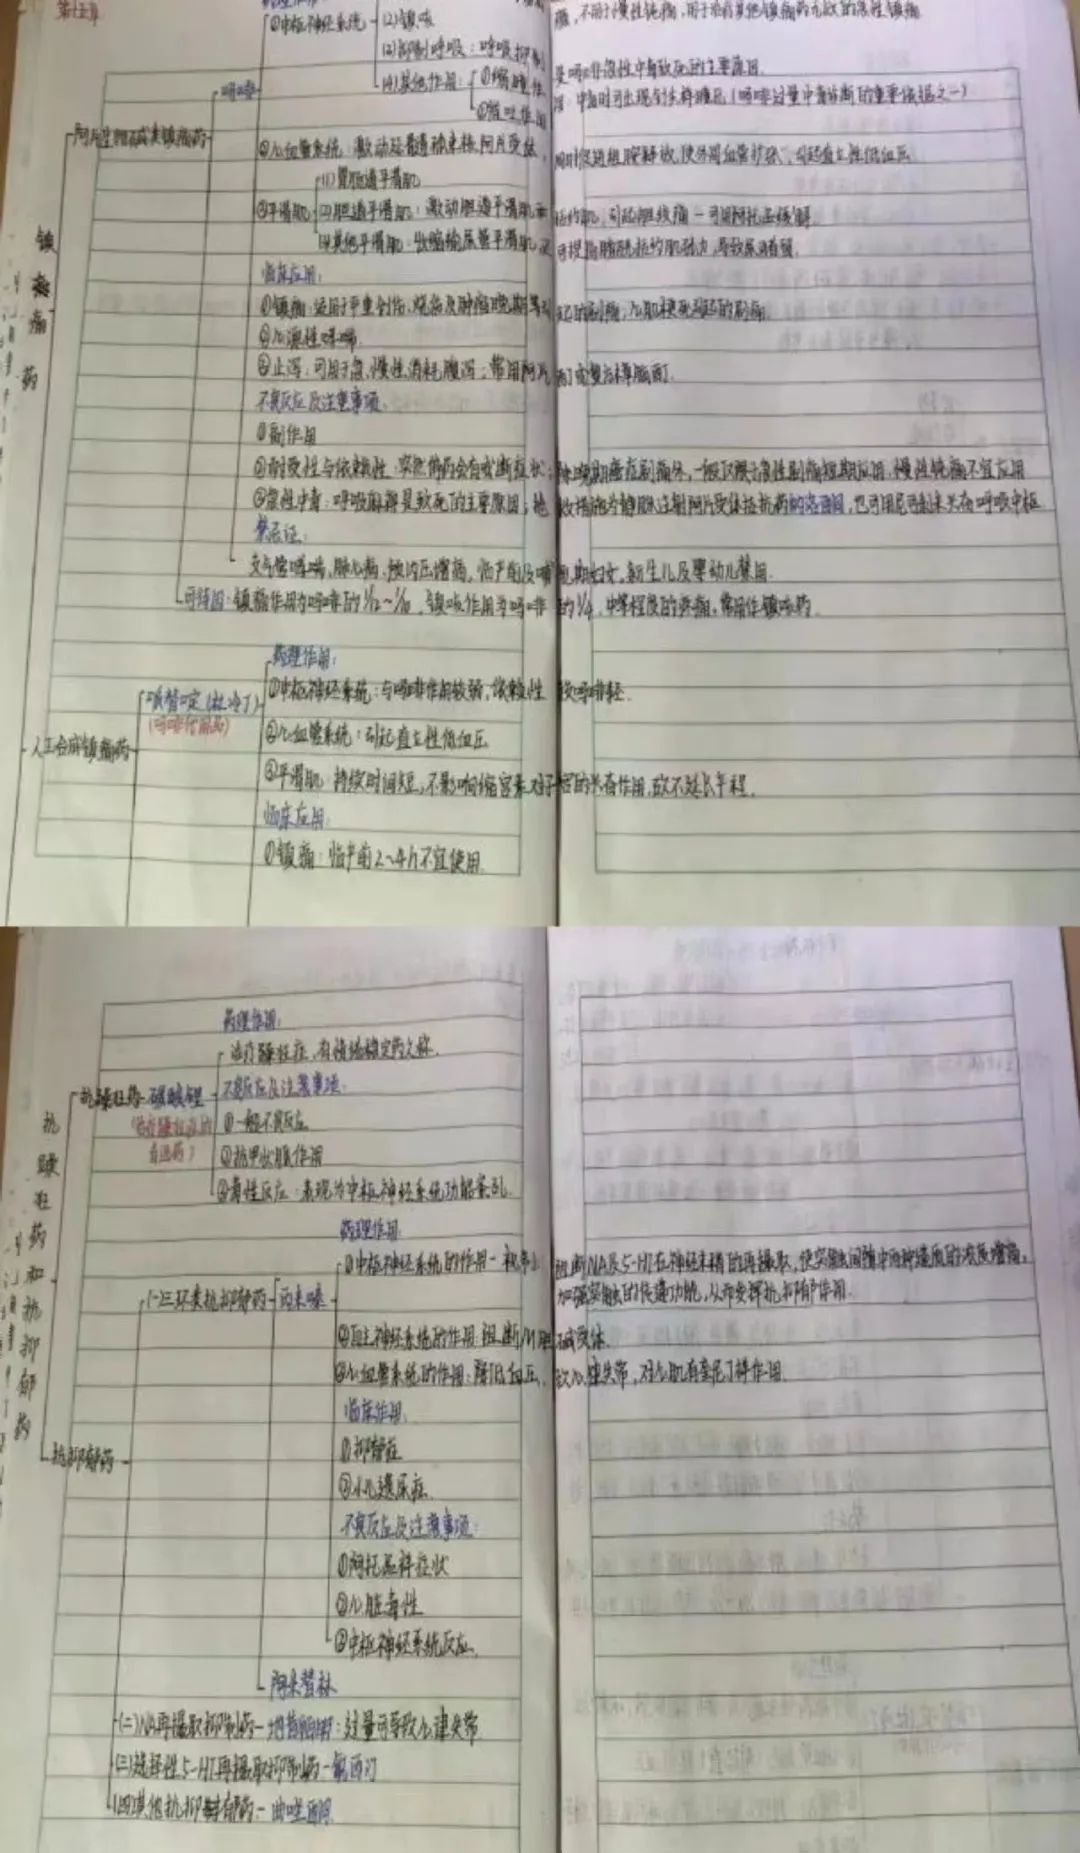 ①中枢神经系统 (2)镇咳
痛,不用于慢性钝痛,用于治疗其他镇痛药无效的急性镇痛
(3)抑制呼吸:呼吸抑制是吗啡急性中毒致死的主要原因.
吗啡
(4)其他作用:①缩瞳作用:中毒时可出现针尖样瞳孔(吗啡过量中毒诊断的重要依据之一)
②催吐作用
阿片生物碱类镇痛药
②心血管系统:激动延髓孤束核阿片受体,同时促进组胺释放,使外周血管扩张,引起直立性低血压
(1)胃肠道平滑肌
③平滑肌 (2)胆道平滑肌:激动胆道平滑肌 括约肌,引起胆绞痛-可用阿托品缓解
(3)其他平滑肌:收缩输尿管平滑肌 可提高膀胱括约肌张力,导致尿潴留.
镇痛药
临床应用:
①镇痛:适用于严重创伤、烧伤及肿瘤晚期等引起的剧痛,心肌梗死引起的剧痛.
②心源性哮喘.
③止泻:可用于急、慢性消耗腹泻:常用阿片酊或复方樟脑酊.
不良反应及注意事项:
①副作用
②耐受性与依赖性:突然停药会有戒断症状;除晚期癌症剧痛外,一般仅限于急性剧痛短期应用,慢性钝痛不宜应用
③急性中毒:呼吸麻痹是致死的主要原因;抢救措施为静脉注射阿片受体拮抗药纳洛酮,也可用尼可刹米兴奋呼吸中枢
禁忌证:
支气管哮喘、肺心病、颅内压增高、临产前及哺乳期妇女、新生儿及婴幼儿禁用.
可待因:镇痛作用为吗啡的1/12~1/10,镇咳作用为吗啡的1/4,中等程度的疼痛,常用作镇咳药.
药理作用:
哌替啶(杜冷丁) ①中枢神经系统:与吗啡作用较弱,依赖性较吗啡轻.
(吗啡代用品)
人工合成镇痛药
②心血管系统:引起直立性低血压
③平滑肌:持续时间短,不影响缩宫素对子宫的兴奋作用,故不延长产程.
临床应用:
①镇痛:临产前2~4h不宜使用.
药理作用:
治疗躁狂症,有情绪稳定药之称.
抗躁狂药-碳酸锂 不良反应及注意事项:
(治疗躁狂症的首选药)
①一般不良反应
②抗甲状腺作用
③毒性反应:表现为中枢神经系统功能紊乱.
抗躁狂药和抗抑郁药
药理作用:
①中枢神经系统的作用- 阻断NA及5-HT在神经末梢的再摄取,使突触间隙中两种递质的浓度增高,
加强突触的传递功能,从而发挥抗抑郁作用.
(一)三环类抗抑郁药-丙米嗪
②自主神经系统的作用:阻断M胆碱受体.
③心血管系统的作用:降低血压、致心律失常,对心肌有奎尼丁样作用.
临床作用:
①抑郁症
抗抑郁药
②小儿遗尿症.
不良反应及注意事项:
①阿托品样症状
②心脏毒性
③中枢神经系统反应.
阿米替林
(二)NA再摄取抑制药-地昔帕明:过量可导致心律失常
(三)选择性5-HT再摄取抑制药-氟西汀
(四)其他抗抑郁药-曲唑酮